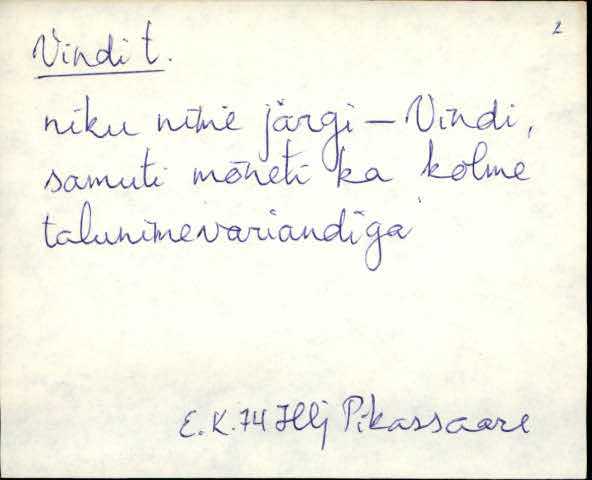 2
Vindi t.
niku nime järgi – Vindi,
samuti mõneti ka kolme
talunimevariandiga
E. K. 74 Hlj Pikassaare